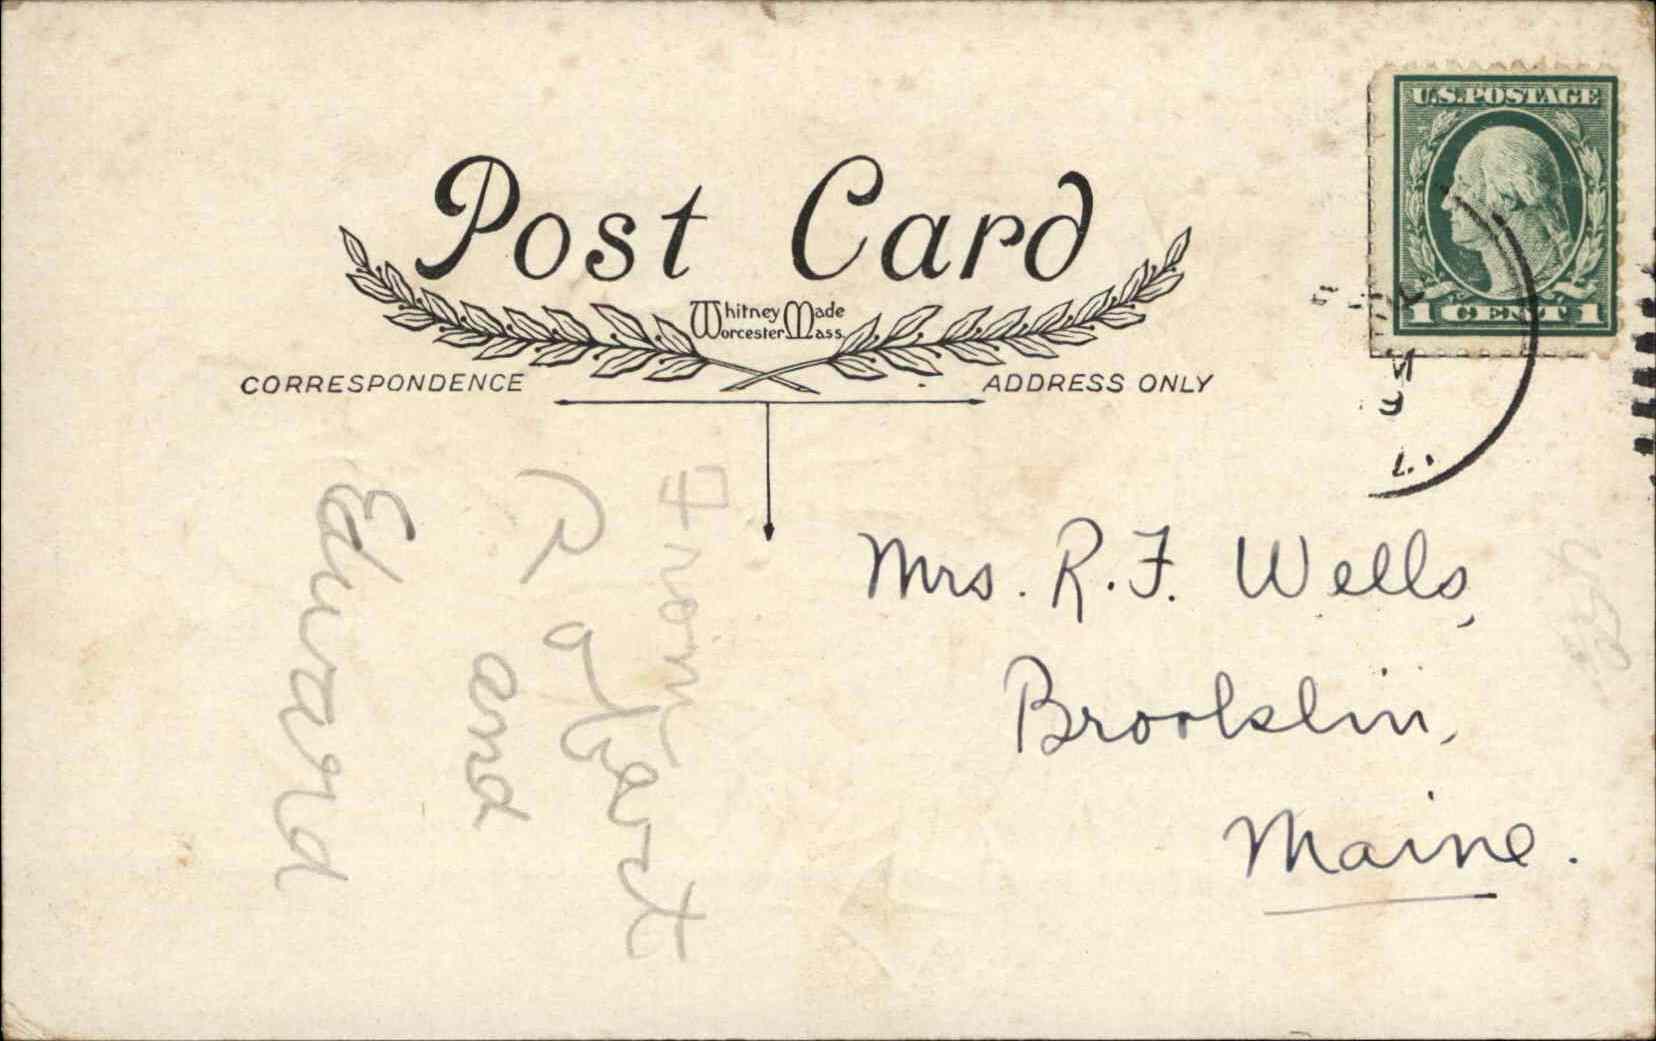 U.S. POSTAGE
1 CENT 1
Post Card
Whitney Made
Worcester Mass.
CORRESPONDENCE
ADDRESS ONLY
From
Robert
and
Edward
Mrs. R. F. Wells,
Brooklin,
Maine.